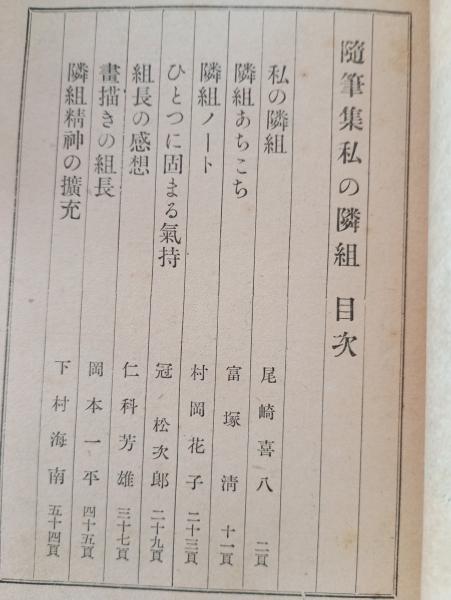 隨筆集私の隣組 目次
私の隣組 尾崎喜八 二頁
隣組あちこち 富塚淸 十一頁
隣組ノート 村岡花子 二十三頁
ひとつに固まる氣持 冠松次郞 二十九頁
組長の感想 仁科芳雄 三十七頁
畫描きの組長 岡本一平 四十五頁
隣組精神の擴充 下村海南 五十四頁